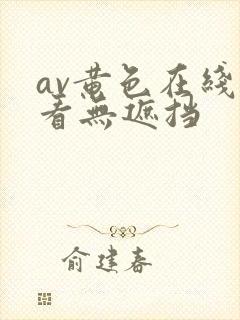 av黄色在綫
看無遮挡
俞建春